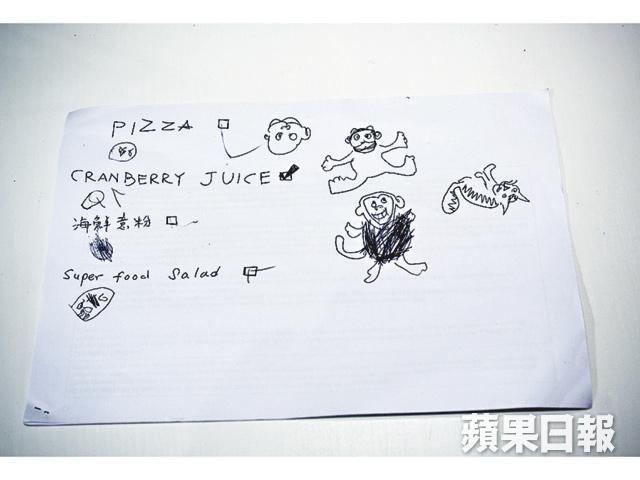 PIZZA
CRANBERRY JUICE
海鮮意粉
Super food Salad
蘋果日報